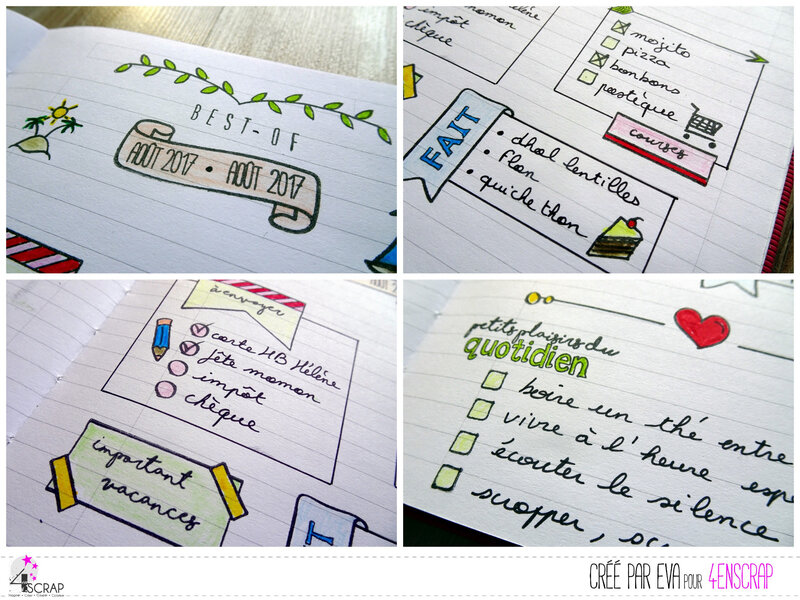 BEST-OF
AOÛT 2017 • AOÛT 2017
Hélène
momon
impôt
chèque
mojito
pizza
bonbons
pastèque
courses
FAIT
• dhal lentilles
• flan
• quiche thon
à envoyer
carte HB Hélène
fête momon
impôt
chèque
important
vacances
T
petits plaisirs du
quotidien
boire un thé entre
vivre à l'heure esp
écouter le silence
scrapper,
4enSCRAP
CRÉÉ PAR EVA POUR 4ENSCRAP